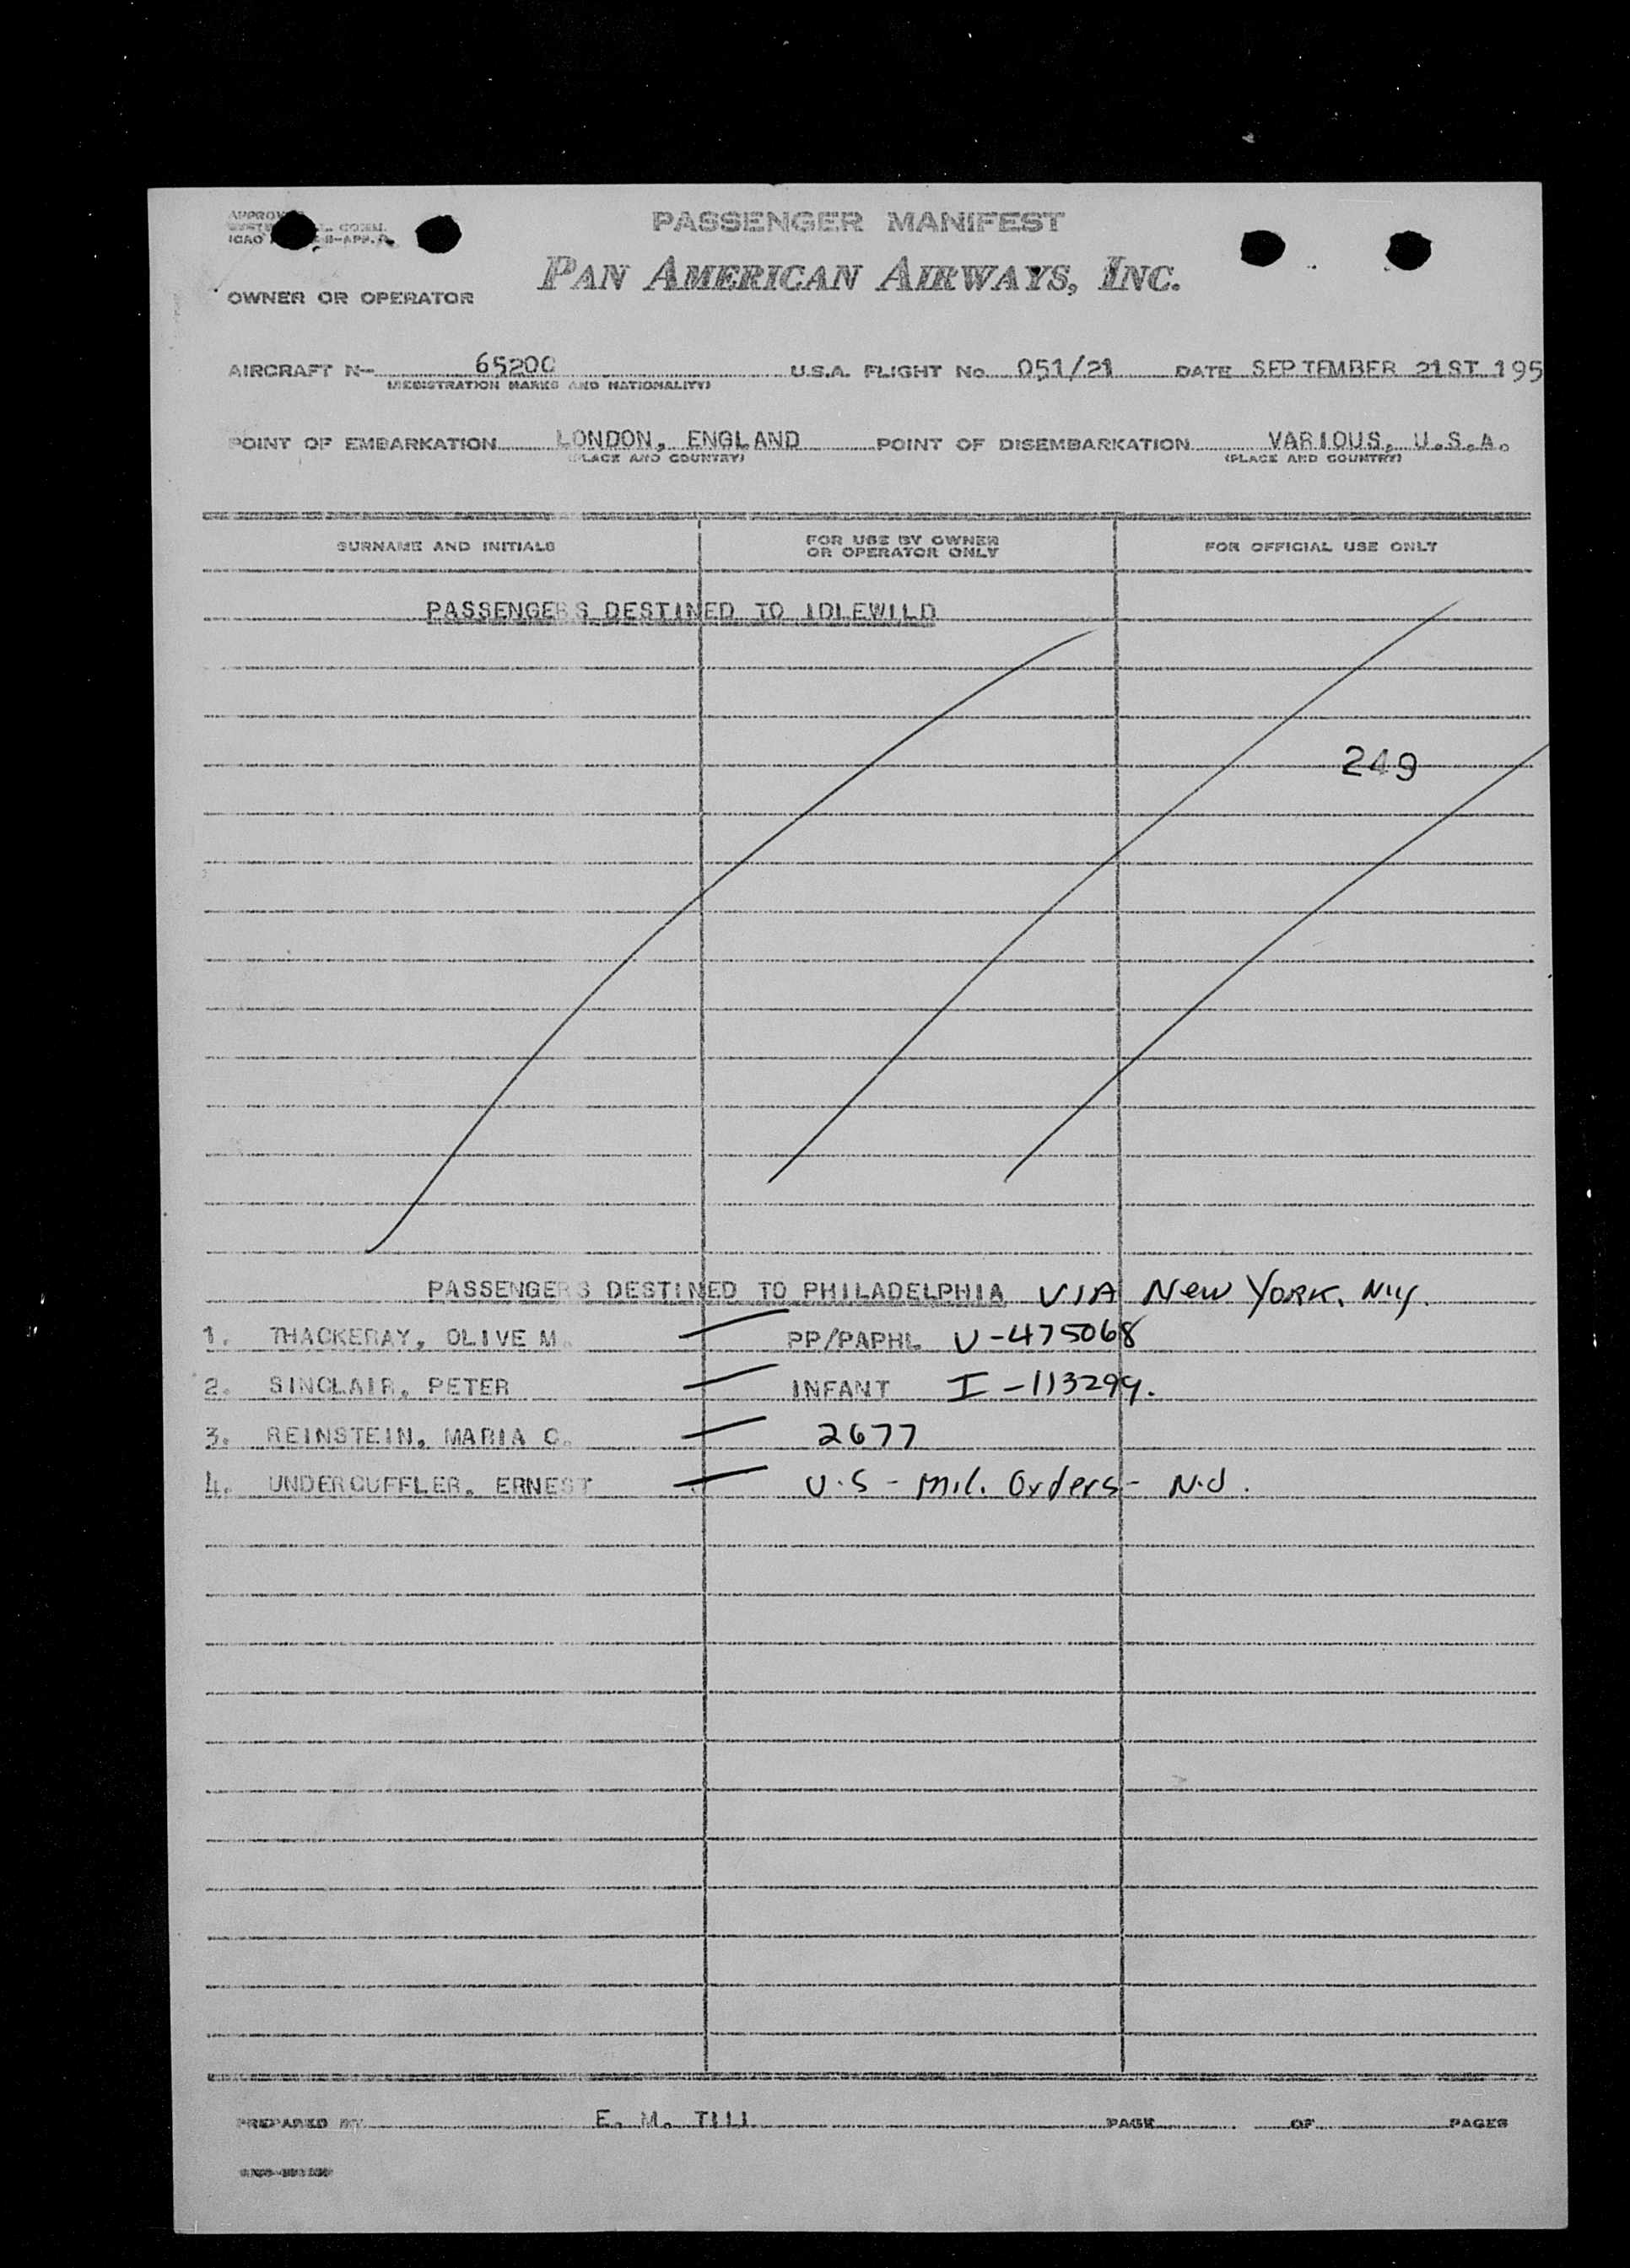 PASSENGER MANIFEST
PAN AMERICAN AIRWAYS, INC.
OWNER OR OPERATOR
AIRCRAFT N- 65200 U.S.A. FLIGHT No 051/21 DATE SEPTEMBER 21ST 195
(REGISTRATION MARKS AND NATIONALITY)
POINT OF EMBARKATION LONDON, ENGLAND POINT OF DISEMBARKATION VARIOUS, U.S.A.
(PLACE AND COUNTRY) (PLACE AND COUNTRY)
SURNAME AND INITIALS FOR USE BY OWNER OR OPERATOR ONLY FOR OFFICIAL USE ONLY
PASSENGERS DESTINED TO IDLEWILD
249
PASSENGERS DESTINED TO PHILADELPHIA VIA New York, N.Y.
1. THACKERAY, OLIVE M. PP/PAPHL U-475068
2. SINCLAIR, PETER INFANT I-113299.
3. REINSTEIN, MARIA C. 2677
4. UNDERCUFFLER, ERNEST U.S - Mil. Orders - N.J.
PREPARED BY E. M. TILL PAGE OF PAGES